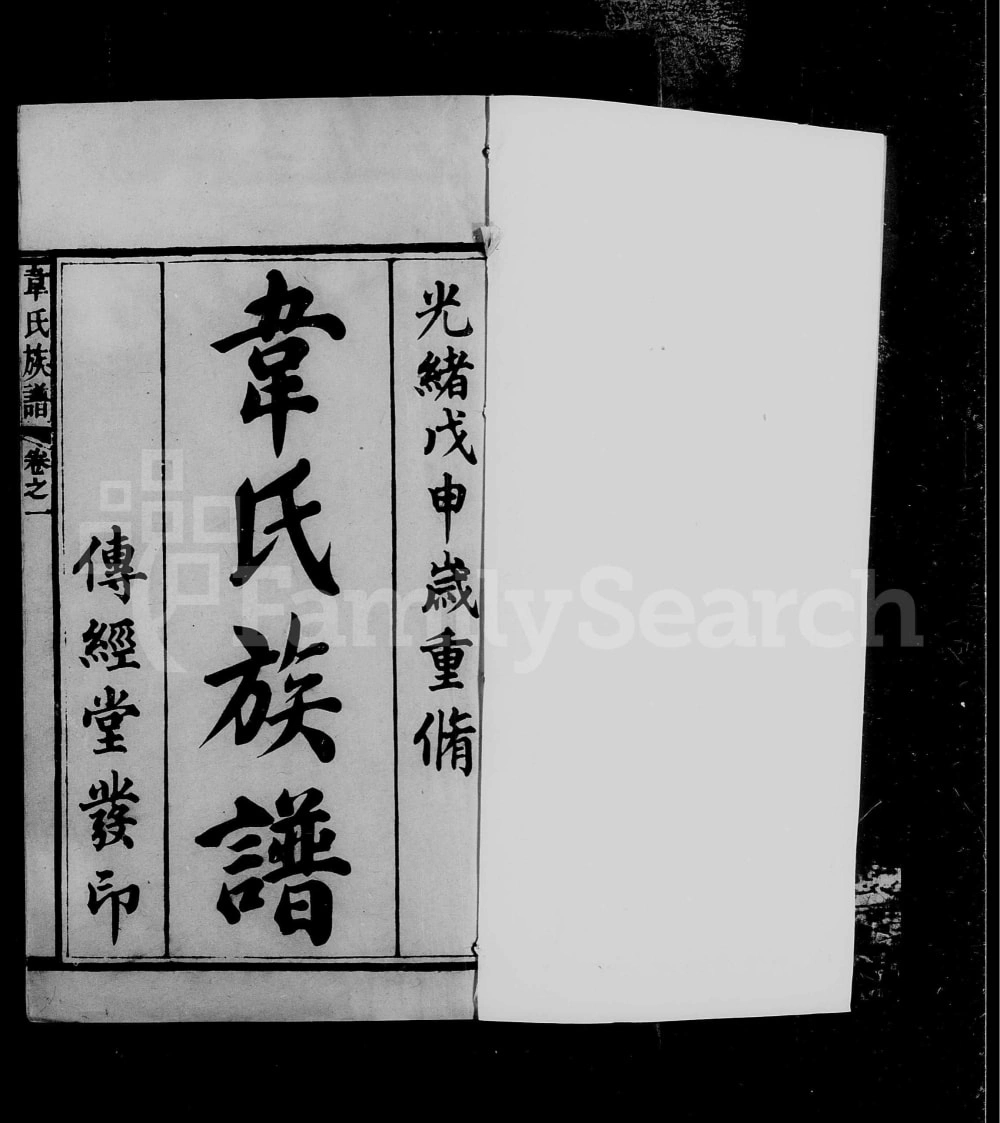 光緒戊申歲重脩
韋氏族譜
傳經堂發印
韋氏族譜 卷之一
FamilySearch